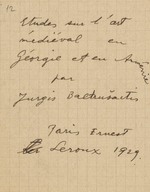 12
Etudes sur l'art
médiéval en
Géorgie et en Arménie
par
Jurgis Baltrušaitis
Paris Ernest
Leroux 1929